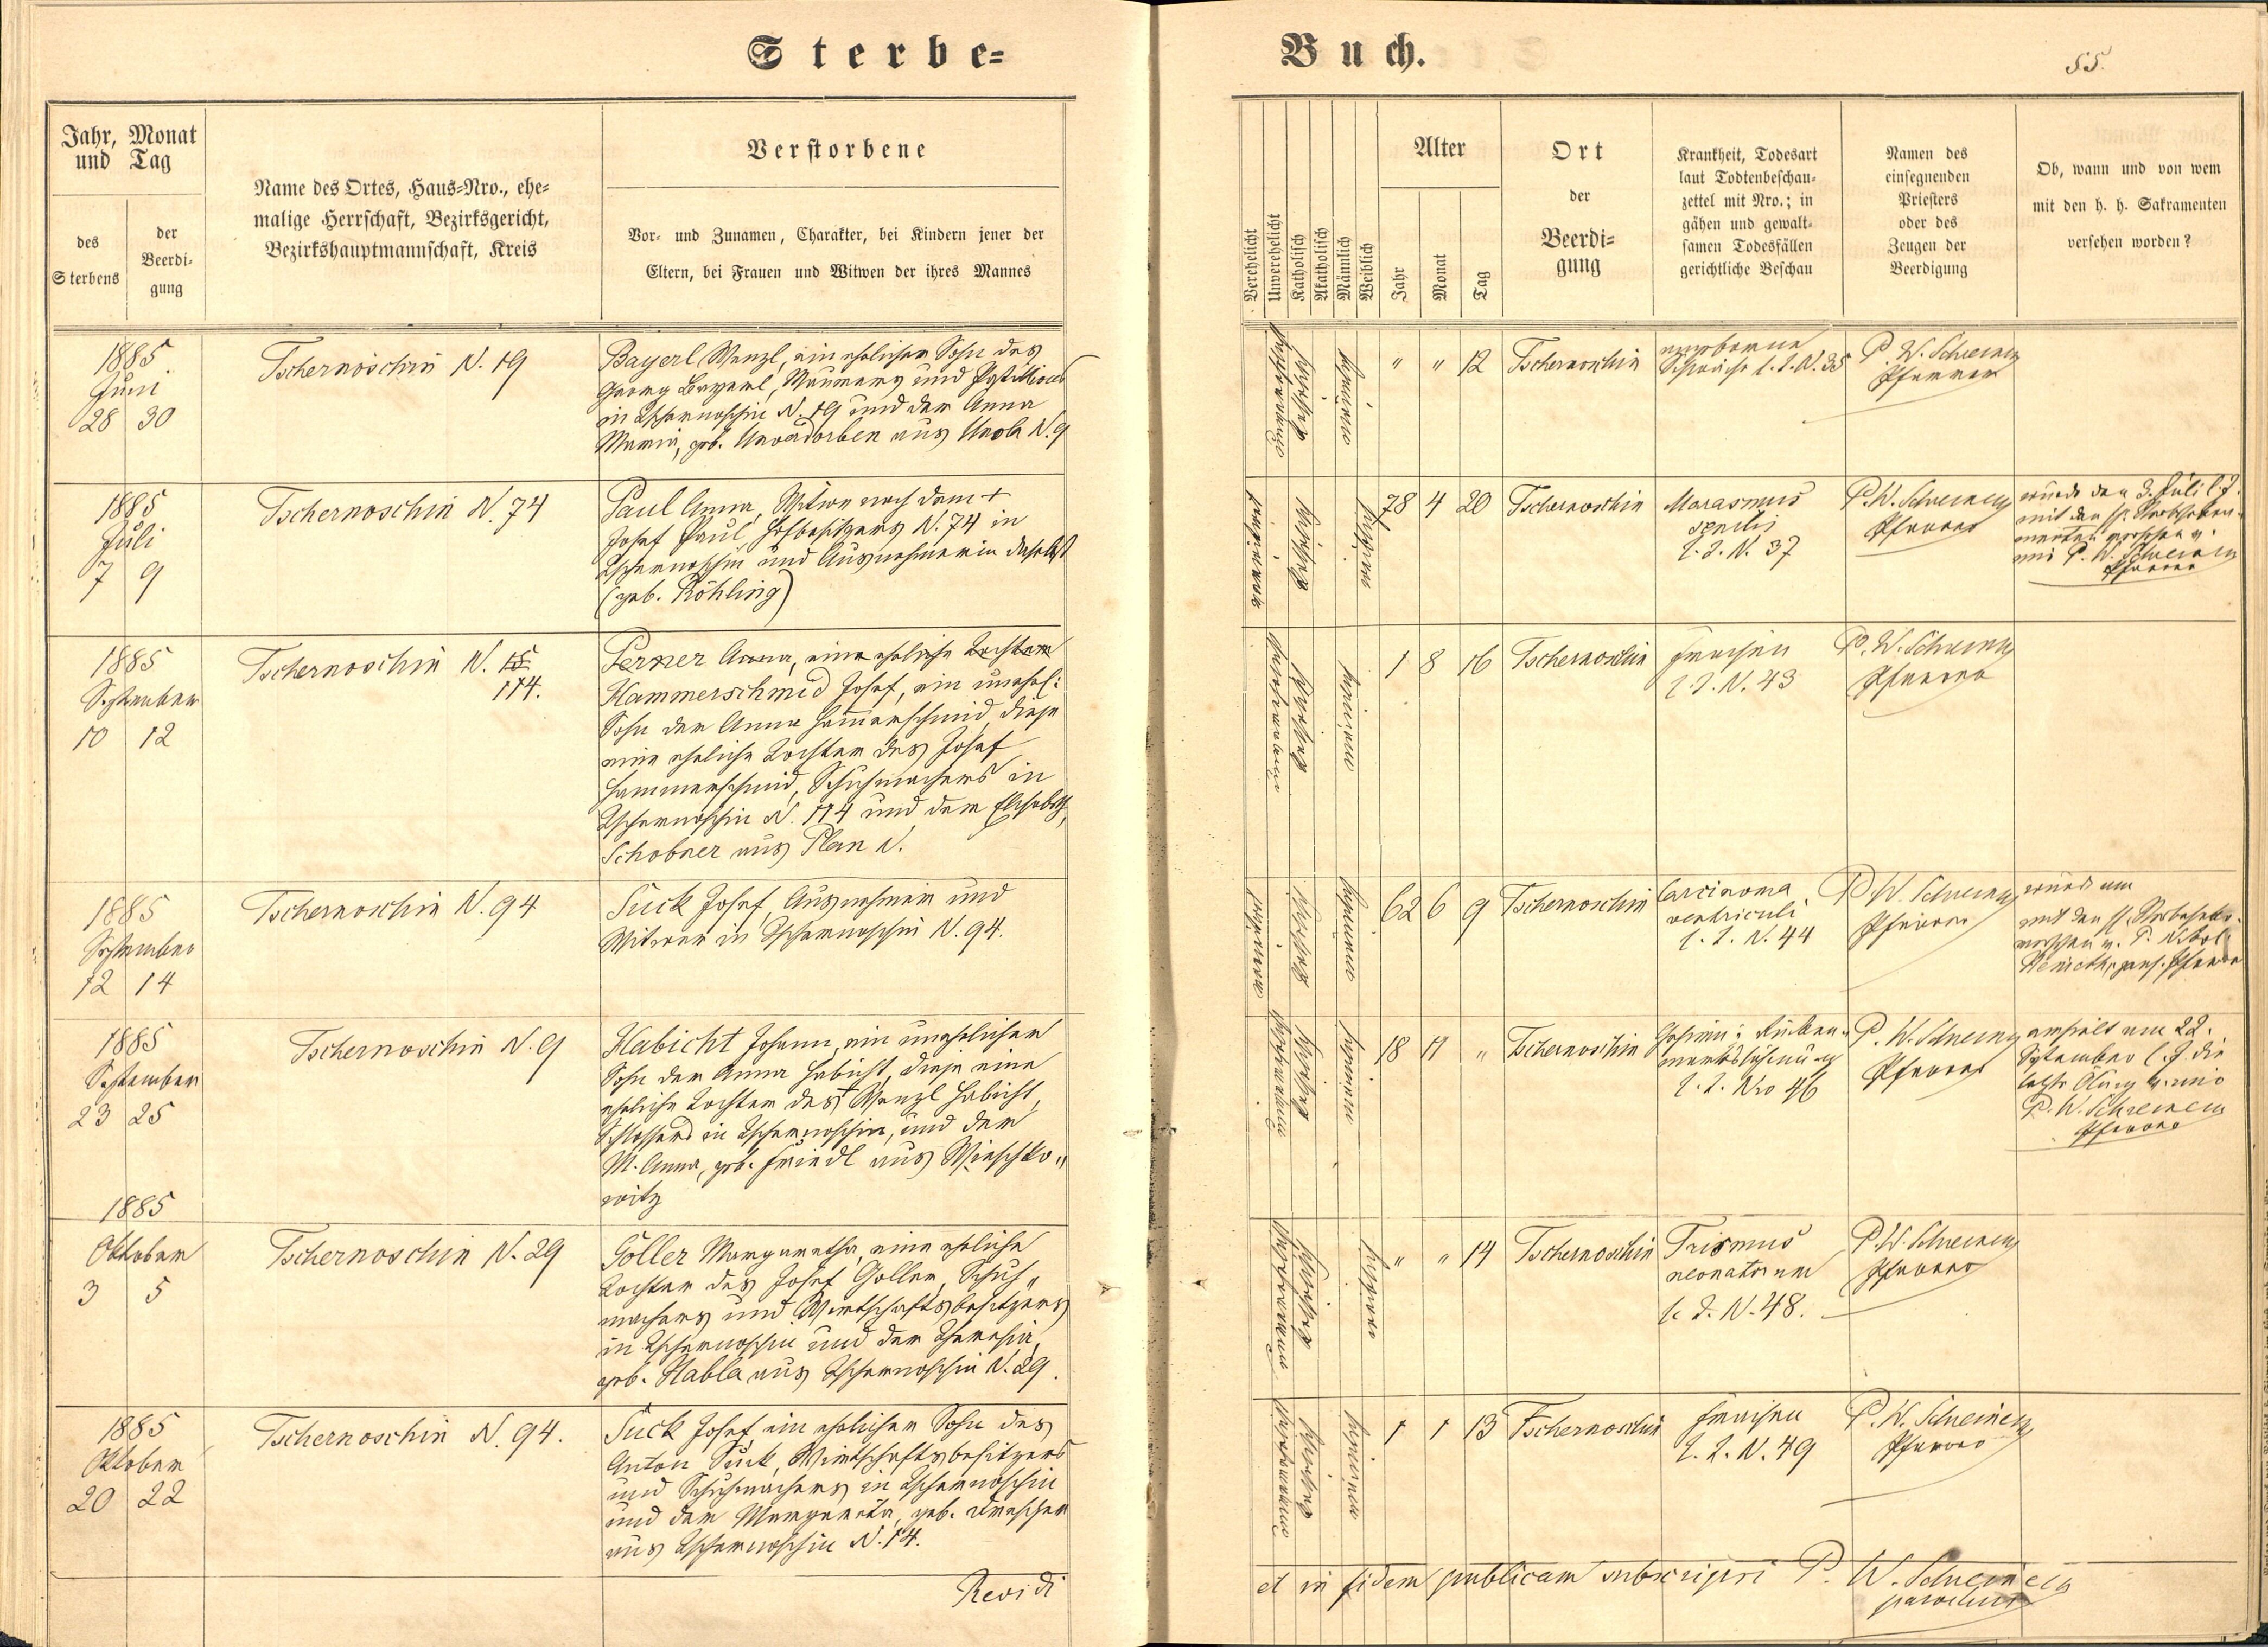 Sterbe-
Buch.
55.
Jahr, Monat
und Tag
des
Sterbens
der
Beerdi-
gung
Name des Ortes, Haus-Nro., ehe-
malige Herrschaft, Bezirksgericht,
Bezirkshauptmannschaft, Kreis
Verstorbene
Vor- und Zunamen, Charakter, bei Kindern jener der
Eltern, bei Frauen und Witwen der ihres Mannes
Verehelicht
Unverehelicht
Katholisch
Akatholisch
Männlich
Weiblich
Alter
Jahr
Monat
Tag
Ort
der
Beerdi-
gung
Krankheit, Todesart
laut Todtenbeschau-
zettel mit Nro.; in
gähen und gewalt-
samen Todesfällen
gerichtliche Beschau
Namen des
einsegnenden
Priesters
oder des
Zeugen der
Beerdigung
Ob, wann und von wem
mit den h. h. Sakramenten
versehen worden?
1885
Juni
28 30
Tschernoschin N. 19
Bayerl Wenzl, ein ehelicher Sohn des
Georg Bayerl, Maurers und Postillions
in Tschernoschin N. 19 und der Anna
Maria, geb. aus N. 9
" " 12
Tschernoschin
angeborene
Schwäche l. Z. N. 35
P. W. Schreiner
Pfarrer
1885
Juli
7 9
Tschernoschin N. 74
Paul Anna, Witwe nach dem +
Josef Paul, Hofbesitzers N. 74 in
Tschernoschin und Ausnehmerin daselbst
(geb. Röhling)
78 4 20
Tschernoschin
Marasmus
senilis
l. Z. N. 37
P. W. Schreiner
Pfarrer
wurde den 3. Juli l. J.
mit den hl. Sterbsakra-
menten versehen v.
P. W. Schreiner
Pfarrer
1885
September
10 12
Tschernoschin N. 15
114.
Perner Anna, eine eheliche Tochter
Hammerschmid Josef, ein unehel:
Sohn der Anna Hammerschmid, diese
eine eheliche Tochter des Josef
Hammerschmid, Schuhmachers in
Tschernoschin N. 114 und der Elisabeth,
Schobner aus Plan N.
1 8 16
Tschernoschin
Fraisen
l. Z. N. 43
P. W. Schreiner
Pfarrer
1885
September
12 14
Tschernoschin N. 94
Suck Josef, Ausnehmer und
Witwer in Tschernoschin N. 94.
62 6 9
Tschernoschin
Carcinoma
ventriculi
l. Z. N. 44
P. W. Schreiner
Pfarrer
wurde am
mit den hl. Sterbsakr.
versehen v. P.
pens. Pfarrer
1885
September
23 25
Tschernoschin N. 9
Habicht Johann, ein unehelicher
Sohn der Anna Habicht, diese eine
eheliche Tochter des + Wenzl Habicht,
Schlossers in Tschernoschin, und der
M. Anna, geb. Friedl aus Wieschko"
witz
18 11 "
Tschernoschin
Gehirn: Rücken"
markslähmung
l. Z. Nro 46
P. W. Schreiner
Pfarrer
erhielt am 22.
September l. J. die
letzte Ölung
P. W. Schreiner
Pfarrer
1885
Oktober
3 5
Tschernoschin N. 29
Goller Margaretha, eine eheliche
Tochter des Josef Goller, Schuh"
machers und Wirtschaftsbesitzers
in Tschernoschin und der Theresia,
geb. Habla aus Tschernoschin N. 29.
" " 14
Tschernoschin
Trismus
neonatorum
l. Z. N. 48.
P. W. Schreiner
Pfarrer
1885
Oktober
20 22
Tschernoschin N. 94.
Suck Josef, ein ehelicher Sohn des
Anton Suck, Wirtschaftsbesitzers
und Schuhmachers in Tschernoschin
und der Margareta, geb. Drescher
aus Tschernoschin N. 14.
1 1 13
Tschernoschin
Fraisen
l. Z. N. 49
P. W. Schreiner
Pfarrer
Revidi
et in fidem publicam subscripsi P. W. Schreiner
parochus